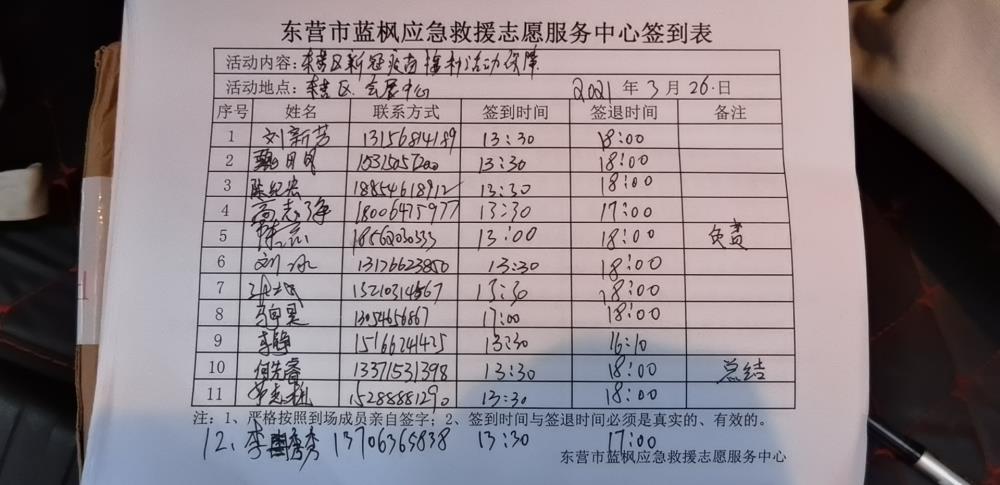 东营市蓝枫应急救援志愿服务中心签到表
活动内容: 东营区新冠疫苗接种活动保障
活动地点: 东营区会展中心 2021年3月26日
序号 姓名 联系方式 签到时间 签退时间 备注
1 刘新芳 13156814189 13:30 18:00
2 13:30 18:00
3 陈纪宏 18854618912 13:30 18:00
4 高志净 18006475977 13:30 17:00
5 18562030333 13:00 18:00 负责
6 刘冰 13176623850 13:30 18:00
7 13210314567 13:30 18:00
8 13054656867 17:00 18:00
9 李静 15166241425 13:30 16:10
10 何先睿 13371531398 13:30 18:00 总结
11 15288881290 13:30 18:00
注: 1、严格按照到场成员亲自签字; 2、签到时间与签退时间必须是真实的、有效的。
12、李秀 13706365838 13:30 17:00
东营市蓝枫应急救援志愿服务中心